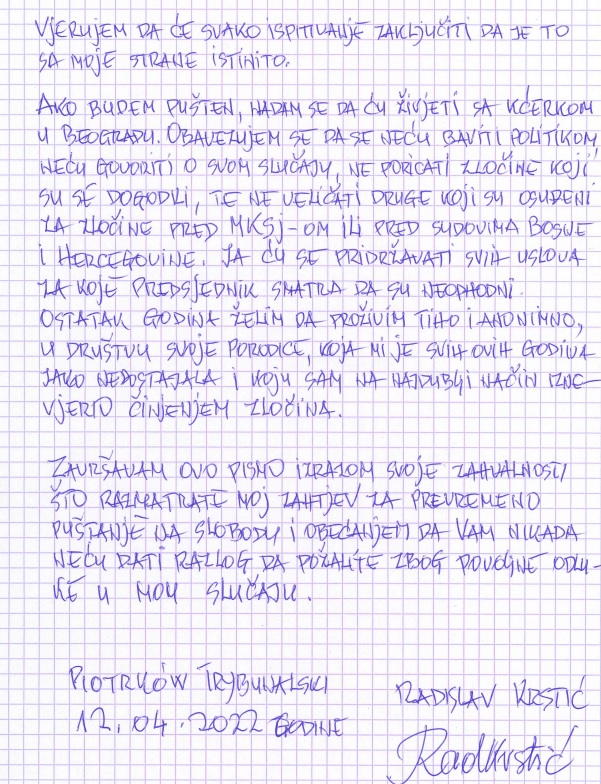 VJERUJEM DA ĆE SVAKO ISPITIVANJE ZAKLJUČITI DA JE TO
SA MOJE STRANE ISTINITO.
AKO BUDEM PUŠTEN, NADAM SE DA ĆU ŽIVJETI SA KĆERKOM
U BEOGRADU. OBAVEZUJEM SE DA SE NEĆU BAVITI POLITIKOM,
NEĆU GOVORITI O SVOM SLUČAJU, NE PORICATI ZLOČINE KOJI
SU SE DOGODILI, TE NE VELIČATI DRUGE KOJI SU OSUĐENI
ZA ZLOČINE PRED MKSJ-OM ILI PRED SUDOVIMA BOSNE
I HERCEGOVINE. JA ĆU SE PRIDRŽAVATI SVIH USLOVA
ZA KOJE PREDSJEDNIK SMATRA DA SU NEOPHODNI.
OSTATAK GODINA ŽELIM DA PROŽIVIM TIHO I ANONIMNO,
U DRUŠTVU SVOJE PORODICE, KOJA MI JE SVIH OVIH GODINA
JAKO NEDOSTAJALA I KOJU SAM NA NAJDUBLJI NAČIN IZNE-
VJERIO ČINJENJEM ZLOČINA.
ZAVRŠAVAM OVO PISMO IZRAZOM SVOJE ZAHVALNOSTI
ŠTO RAZMATRATE MOJ ZAHTJEV ZA PREVREMENO
PUŠTANJE NA SLOBODU I OBEĆANJEM DA VAM NIKADA
NEĆU DATI RAZLOG DA POŽALITE ZBOG POVOLJNE ODLU-
KE U MOM SLUČAJU.
PIOTRKÓW TRYBUNALSKI
RADISLAV KRSTIĆ
12.04.2022 GODINE
RadKrstić